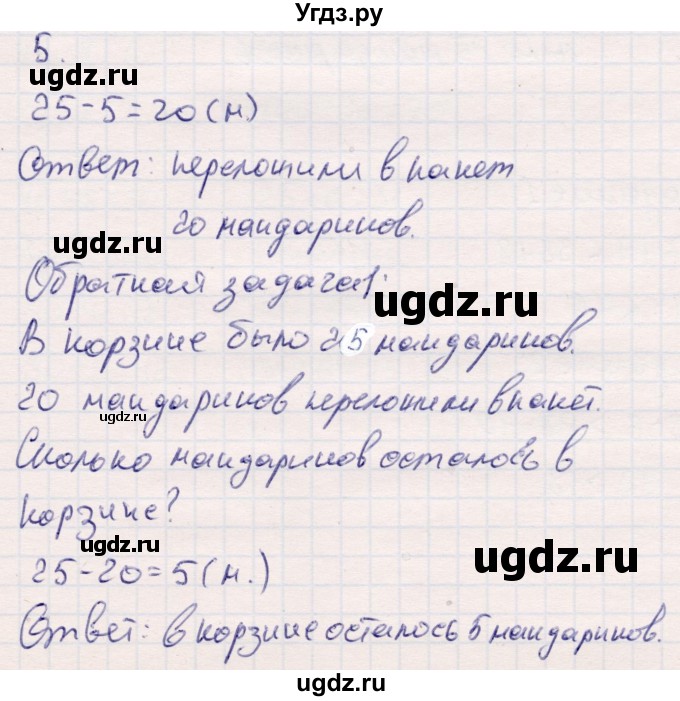 Угдз.ру
5.
ugdz.ru
25-5=20(м)
Ответ: переложили в пакет
20 мандаринов.
ugdz.ru
Обратная задача1:
ugdz.ru
В корзине было 25 мандаринов.
20 мандаринов переложили в пакет.
ugdz.ru
Сколько мандаринов осталось в
корзине?
ugdz.ru
ugdz.ru
25-20=5(м.)
Ответ: в корзине осталось 5 мандаринов.
ugdz.ru
ugdz.ru